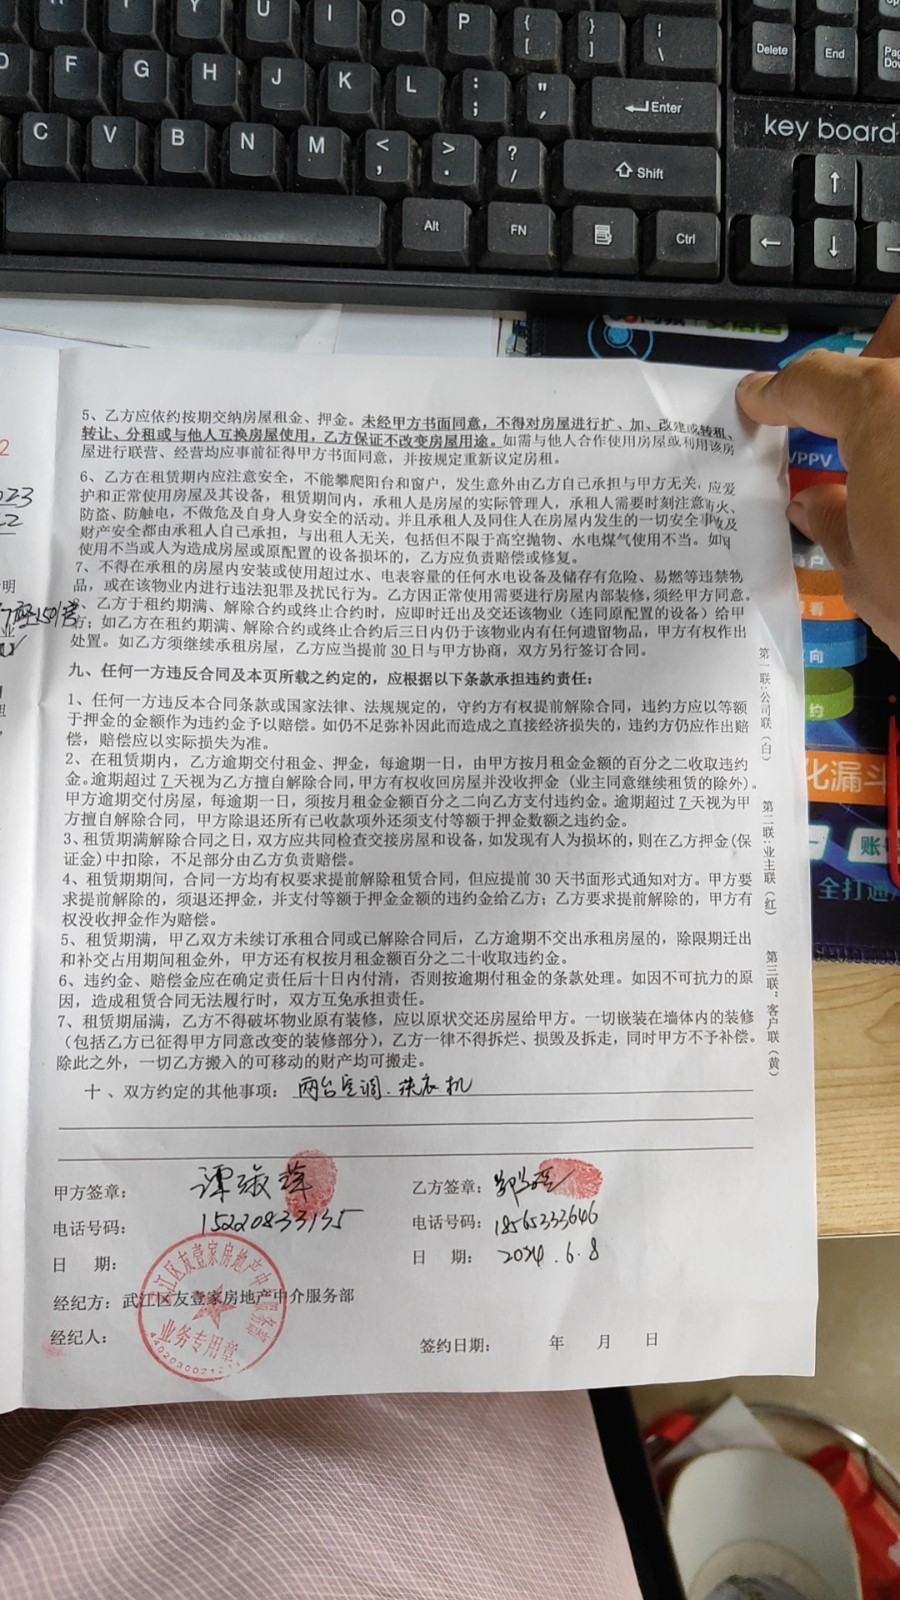 Y U I O P { [ } ] | \
Delete End
D F G H J K L : ; " , Enter
key board
C V B N M < , > . ? / Shift
Alt FN Ctrl
5、乙方应依约按期交纳房屋租金、押金。未经甲方书面同意，不得对房屋进行扩、加、改建或转租、
转让、分租或与他人互换房屋使用，乙方保证不改变房屋用途。如需与他人合作使用房屋或利用该房
屋进行联营、经营均应事前征得甲方书面同意，并按规定重新议定房租。
6、乙方在租赁期内应注意安全，不能攀爬阳台和窗户，发生意外由乙方自己承担与甲方无关，应爱
护和正常使用房屋及其设备，租赁期间内，承租人是房屋的实际管理人，承租人需要时刻注意防火、
防盗、防触电，不做危及自身人身安全的活动。并且承租人及同住人在房屋内发生的一切安全事故及
财产安全都由承租人自己承担，与出租人无关，包括但不限于高空抛物、水电煤气使用不当。如
使用不当或人为造成房屋或原配置的设备损坏的，乙方应负责赔偿或修复。
7、不得在承租的房屋内安装或使用超过水、电表容量的任何水电设备及储存有危险、易燃等违禁物
品，或在该物业内进行违法犯罪及扰民行为。乙方因正常使用需要进行房屋内部装修，须经甲方同意。
、乙方于租约期满、解除合约或终止合约时，应即时迁出及交还该物业（连同原配置的设备）给甲
方；如乙方在租约期满、解除合约或终止合约后三日内仍于该物业内有任何遗留物品，甲方有权作出
处置。如乙方须继续承租房屋，乙方应当提前30日与甲方协商，双方另行签订合同。
九、任何一方违反合同及本页所载之约定的，应根据以下条款承担违约责任：
1、任何一方违反本合同条款或国家法律、法规规定的，守约方有权提前解除合同，违约方应以等额
于押金的金额作为违约金予以赔偿。如仍不足弥补因此而造成之直接经济损失的，违约方仍应作出赔
偿，赔偿应以实际损失为准。
2、在租赁期内，乙方逾期交付租金、押金，每逾期一日，由甲方按月租金金额的百分之二收取违约
金。逾期超过7天视为乙方擅自解除合同，甲方有权收回房屋并没收押金（业主同意继续租赁的除外）。
甲方逾期交付房屋，每逾期一日，须按月租金金额百分之二向乙方支付违约金。逾期超过7天视为甲
方擅自解除合同，甲方除退还所有已收款项外还须支付等额于押金数额之违约金。
3、租赁期满解除合同之日，双方应共同检查交接房屋和设备，如发现有人为损坏的，则在乙方押金（保
证金）中扣除，不足部分由乙方负责赔偿。
4、租赁期期间，合同一方均有权要求提前解除租赁合同，但应提前30天书面形式通知对方。甲方要
求提前解除的，须退还押金，并支付等额于押金金额的违约金给乙方；乙方要求提前解除的，甲方有
权没收押金作为赔偿。
5、租赁期满，甲乙双方未续订承租合同或已解除合同后，乙方逾期不交出承租房屋的，除限期迁出
和补交占用期间租金外，甲方还有权按月租金额百分之二十收取违约金。
6、违约金、赔偿金应在确定责任后十日内付清，否则按逾期付租金的条款处理。如因不可抗力的原
因，造成租赁合同无法履行时，双方互免承担责任。
7、租赁期届满，乙方不得破坏物业原有装修，应以原状交还房屋给甲方。一切嵌装在墙体内的装修
（包括乙方已征得甲方同意改变的装修部分），乙方一律不得拆烂、损毁及拆走，同时甲方不予补偿。
除此之外，一切乙方搬入的可移动的财产均可搬走。
十、双方约定的其他事项：两台空调.洗衣机
甲方签章：谭淑萍
乙方签章：
电话号码：15220833135
电话号码：18565333646
日 期：
日 期：2024.6.8
经纪方：武江区友壹家房地产中介服务部
经纪人：
签约日期： 年 月 日
武江区友壹家房地产中介服务部
业务专用章
第一联：公司联（白）
第二联：业主联（红）
第三联：客户联（黄）
VPPV
化漏斗
全打通